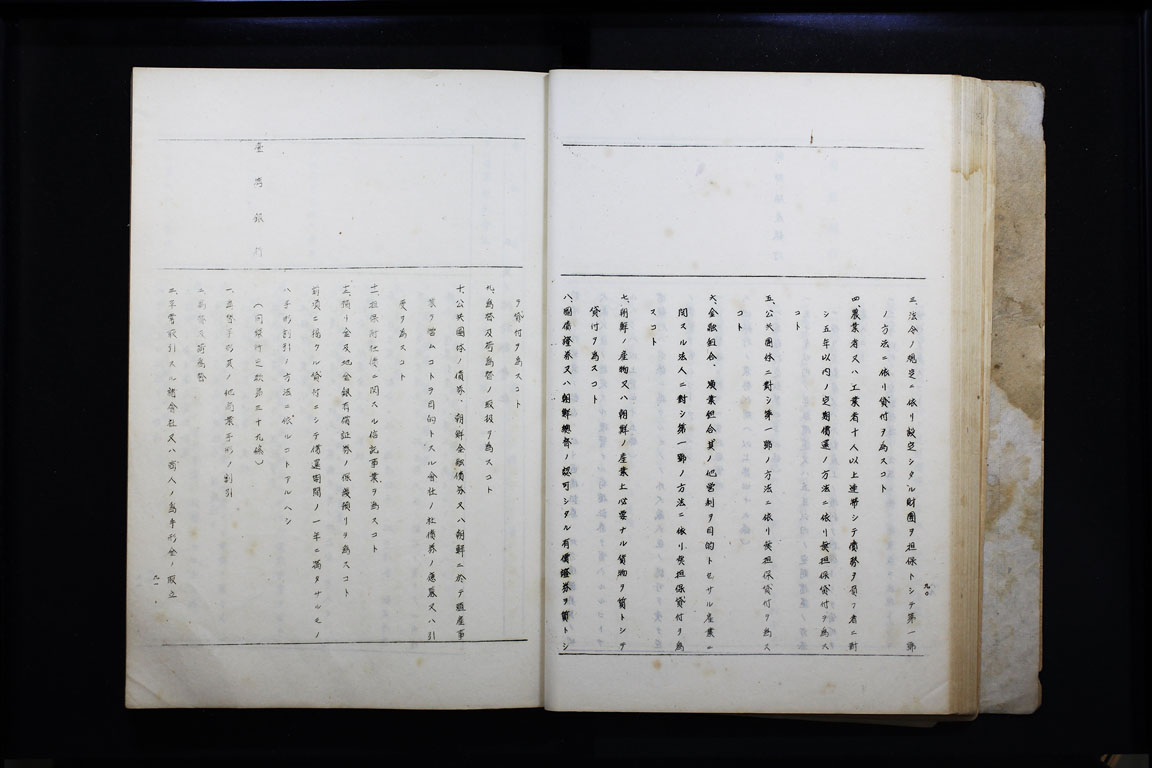 三、法令ノ規定ニ依リ設定シタル財團ヲ担保トシテ第一號
ノ方法ニ依リ貸付ヲ為スコト
四、農業者又ハ工業者十人以上連帯シテ債務ヲ負フ者ニ對
シ五年以内ノ定期償還ノ方法ニ依リ無担保貸付ヲ為ス
コト
五、公共團体ニ對シ第一號ノ方法ニ依リ無担保貸付ヲ為ス
コト
六、金融組合、漁業組合其ノ他営利ヲ目的トセサル産業ニ
関スル法人ニ對シ第一號ノ方法ニ依リ無担保貸付ヲ為
スコト
七、朝鮮ノ産物又ハ朝鮮ノ産業上必要ナル貨物ヲ質トシテ
貸付ヲ為スコト
八、國債證券又ハ朝鮮總督ノ認可シタル有價證券ヲ質トシ
九〇
ヲ貸付ヲ為スコト
九、為替及荷為替ノ取扱ヲ為スコト
十、公共團体ノ債券、朝鮮金融債券又ハ朝鮮ニ於テ殖産事
業ヲ営ムコトヲ目的トスル会社ノ社債券ノ應募又ハ引
受ヲ為スコト
十一、担保附社債ニ関スル信託事業ヲ為スコト
十二、預リ金及地金銀有價証券ノ保護預リヲ為スコト
前項ニ掲クル貸付ニシテ償還期間ノ一年ニ満タサルモノ
ハ手形割引ノ方法ニ依ルコトアルヘシ
(同銀行定款第三十九條)
臺灣銀行
一、為替手形其ノ他商業手形ノ割引
二、為替及荷為替
三、平常取引スル諸会社又ハ商人ノ為手形金ノ取立
九一